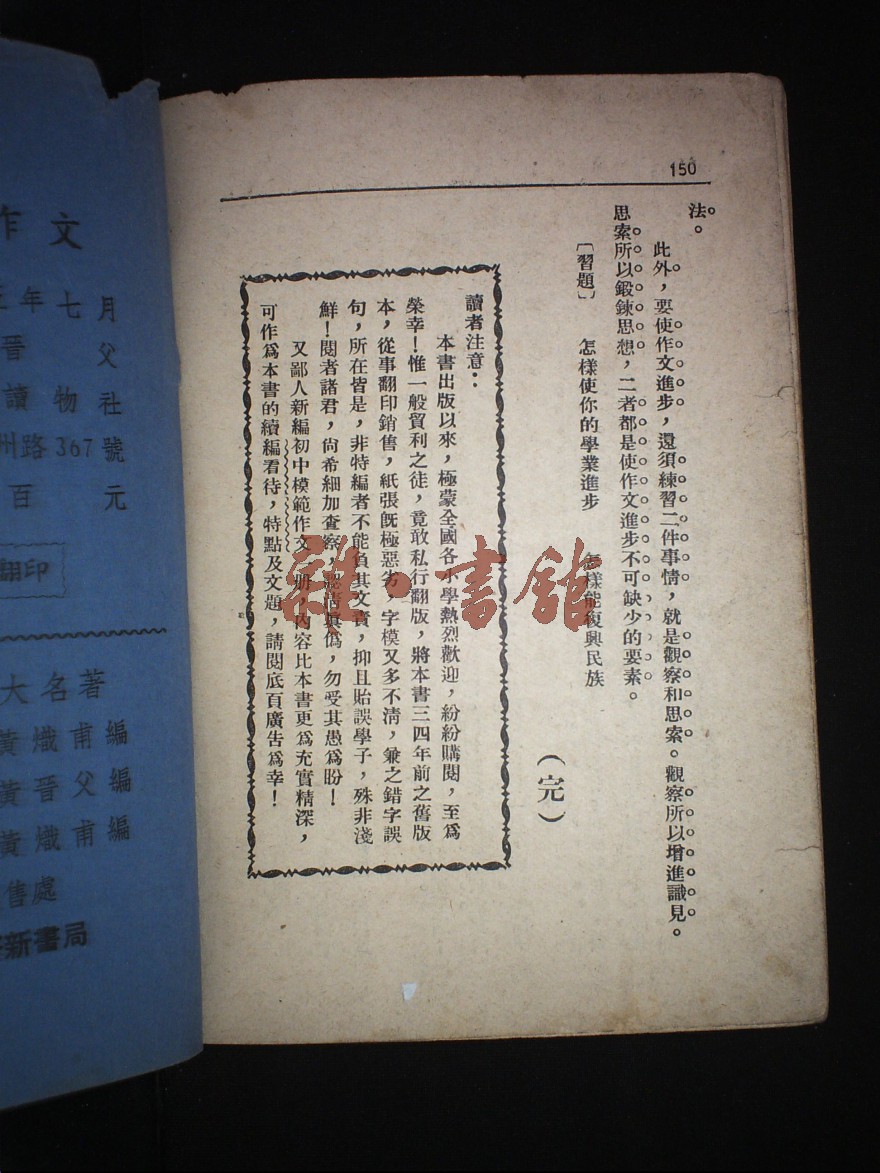 150
法。
此外，要使作文進步，還須練習二件事情，就是觀察和思索。觀察所以增進識見。
思索所以鍛鍊思想，二者都是使作文進步不可缺少的要素。
〔習題〕 怎樣使你的學業進步 怎樣能復興民族
（完）
讀者注意：
本書出版以來，極蒙全國各小學熱烈歡迎，紛紛購閱，至爲
榮幸！惟一般貿利之徒，竟敢私行翻版，將本書三四年前之舊版
本，從事翻印銷售，紙張旣極惡劣 字模又多不淸，兼之錯字誤
句，所在皆是，非特編者不能負其文責，抑且貽誤學子，殊非淺
鮮！閱者諸君，尙希細加查察，認淸眞僞，勿受其愚爲盼！
又鄙人新編初中模範作文 册，內容比本書更爲充實精深，
可作爲本書的續編看待，特點及文題，請閱底頁廣告爲幸！
作文
年七月
晉父
讀物社
州路367號
百元
翻印
大名著
黃熾甫編
黃晉父編
黃熾甫編
售處
新書局
雜·書館